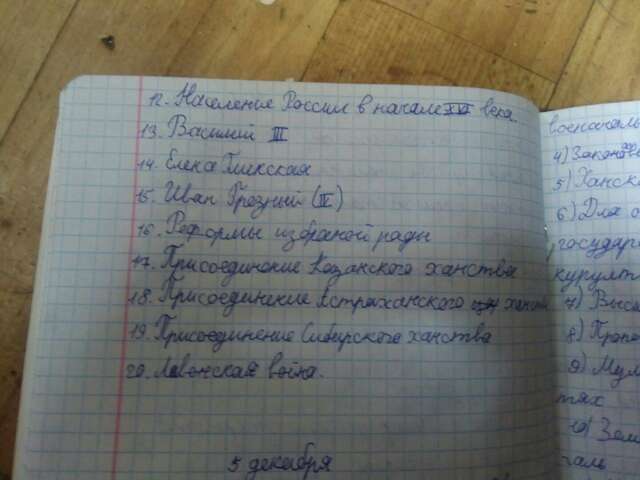 12. Население России в начале XVI века.
13. Василий III
14. Елена Глинская
15. Иван Грозный (IV)
16. Реформы избраной рады
17. Присоединение Казанского ханства
18. Присоединение Астраханского ханства
19. Присоединение Сибирского ханства
20. Ливонская война.
5 декабря
военачаль
4) Законов
5) Ханск
6) Для о
государ
курулт
7) Высш
8)
9) Мул
тях
10) Зем
галь